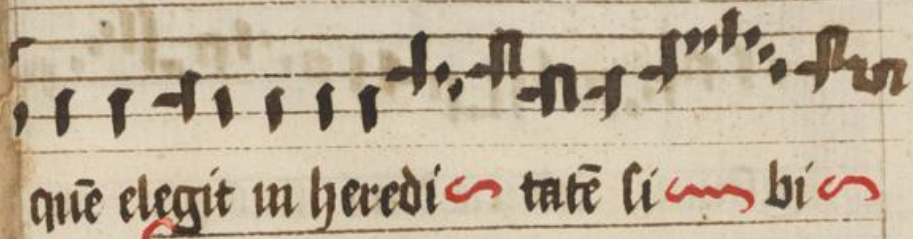 quē elegit in heredi tatē si bi